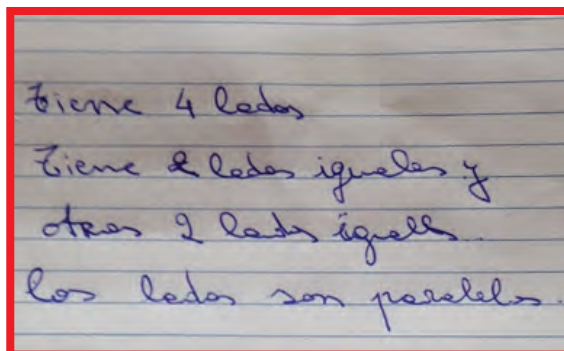 tiene 4 lados
tiene 2 lados iguales y
otros 2 lados iguales.
los lados son paralelos.